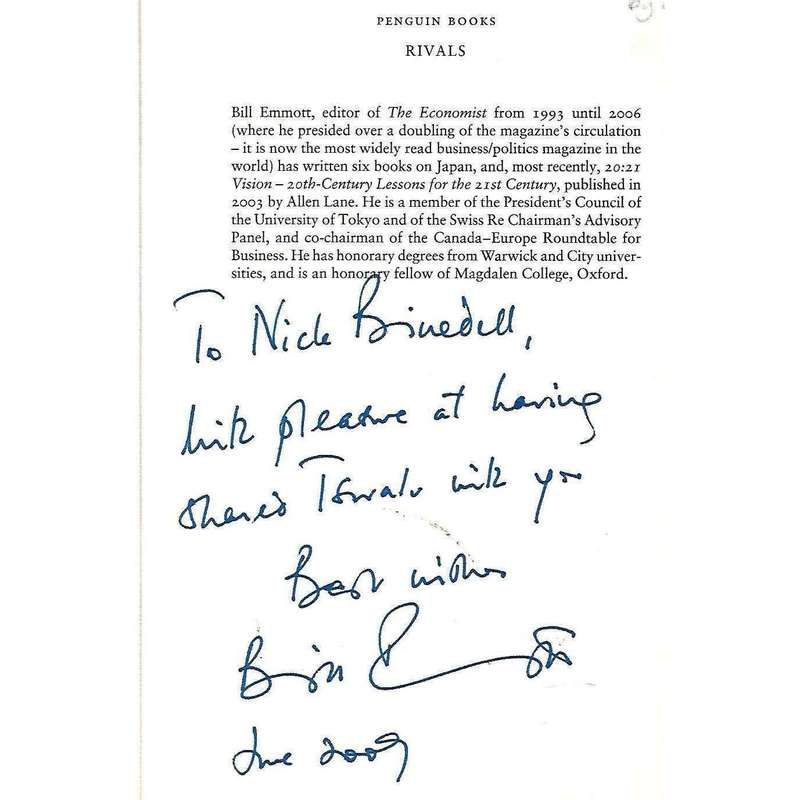 PENGUIN BOOKS
RIVALS
Bill Emmott, editor of The Economist from 1993 until 2006
(where he presided over a doubling of the magazine's circulation
– it is now the most widely read business/politics magazine in the
world) has written six books on Japan, and, most recently, 20:21
Vision – 20th-Century Lessons for the 21st Century, published in
2003 by Allen Lane. He is a member of the President's Council of
the University of Tokyo and of the Swiss Re Chairman's Advisory
Panel, and co-chairman of the Canada–Europe Roundtable for
Business. He has honorary degrees from Warwick and City univer-
sities, and is an honorary fellow of Magdalen College, Oxford.
To Nick Binedell,
with pleasure at having
shared Tswalu with you
Best wishes
Bill Emmott
June 2009